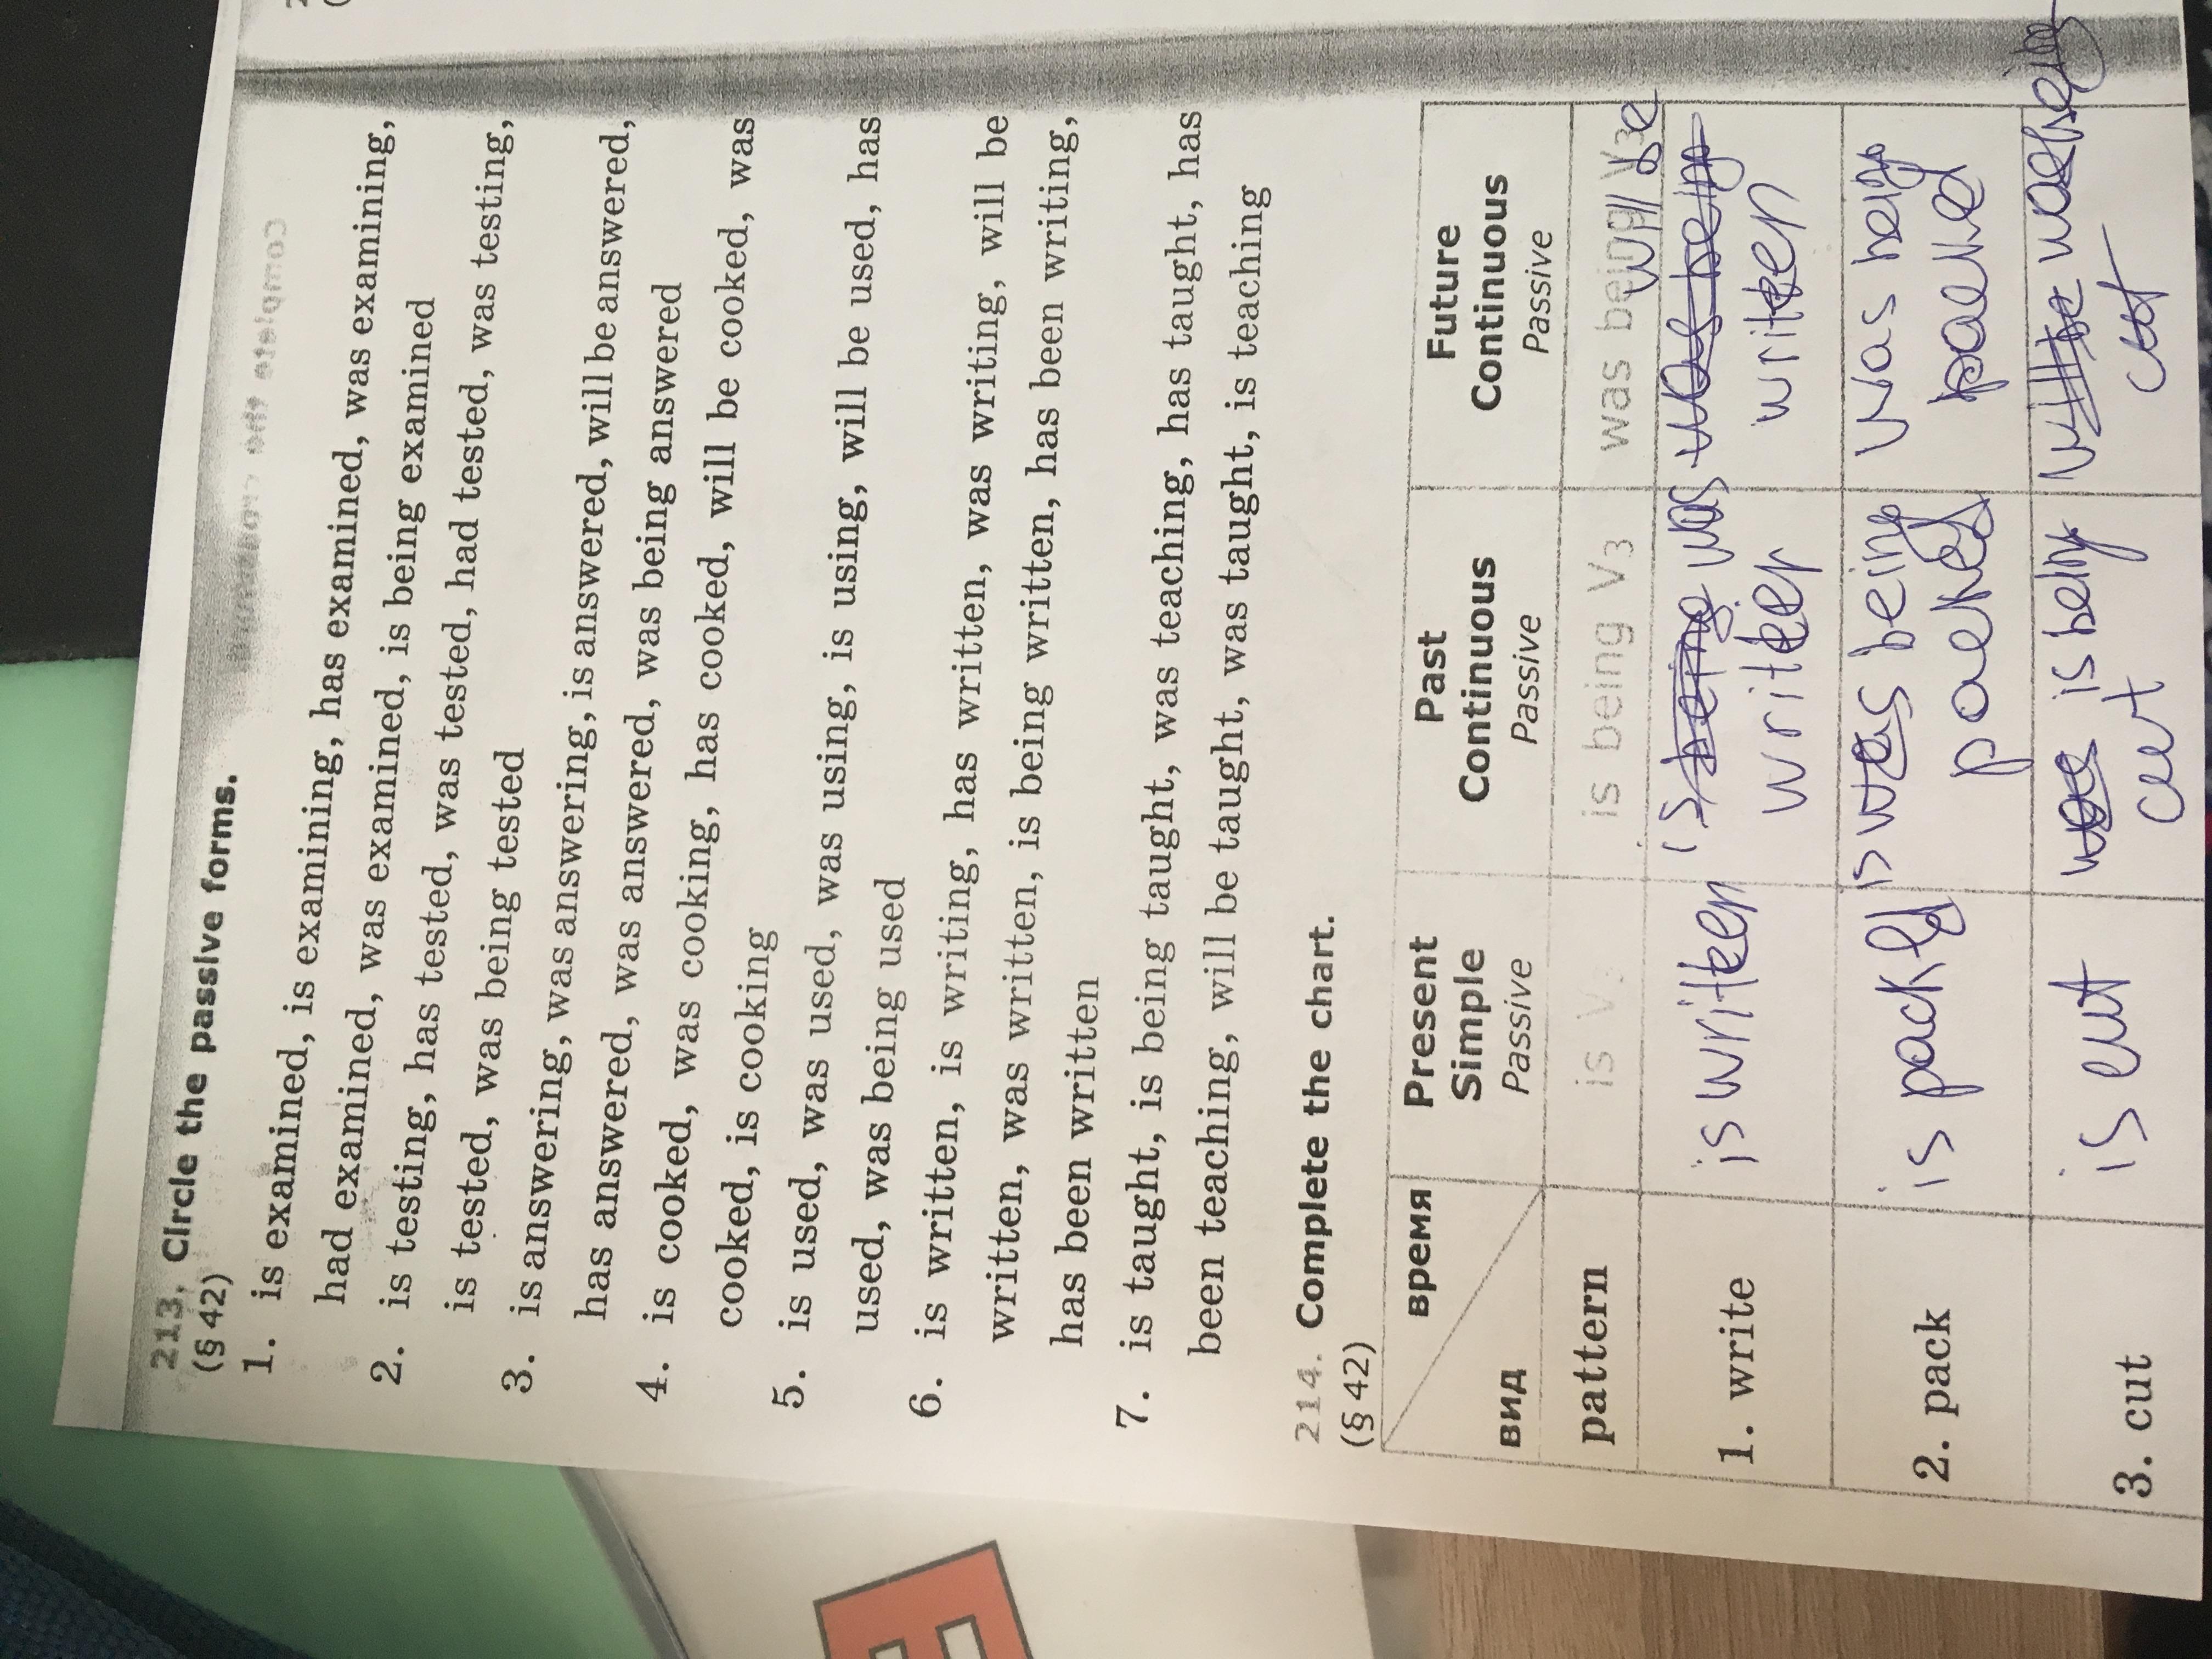 213. Circle the passive forms.
(§ 42)
1. is examined, is examining, has examined, was examining,
had examined, was examined, is being examined
2. is testing, has tested, was tested, had tested, was testing,
is tested, was being tested
3. is answering, was answering, is answered, will be answered,
has answered, was answered, was being answered
4. is cooked, was cooking, has cooked, will be cooked, was
cooked, is cooking
5. is used, was used, was using, is using, will be used, has
used, was being used
6. is written, is writing, has written, was writing, will be
written, was written, is being written, has been writing,
has been written
7. is taught, is being taught, was teaching, has taught, has
been teaching, will be taught, was taught, is teaching
214. Complete the chart.
(§ 42)
время
вид
Present Simple Passive
Past Continuous Passive
Future Continuous Passive
pattern
is V
is being V3
was being V3
will be
1. write
is written
is being was
written
was being
written
2. pack
is packed
is was being
packed
was being
packed
3. cut
is cut
was is being
cut
cut